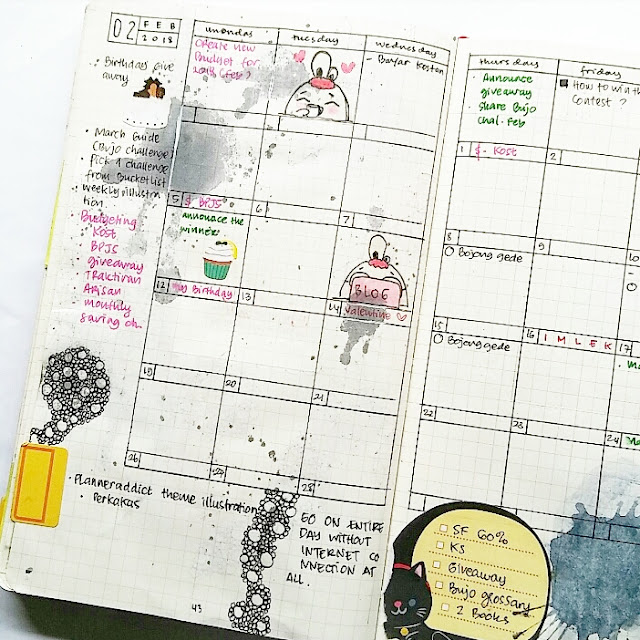 02
FEB
2018
mondas
tuesday
wednesday
thursday
friday
: Birthday Give
away
• March Guide
(Bujo challenge)
• Pick a challenge
from Bucketlist
• weekly illustra
tion.
Budgeting
Kost
BPJS
giveaway
Traktiran
Arisan
monthly
saving
Create new
Budget for
- Bayar Kostan
• Announce
giveaway
share Bujo
chal. Feb
How to win th
Contest ?
1 $ - Kost
2
5 $ BPJS
6
7
announce the
winner
8
9
10
O Bojong gede
BLOG
12 my Birthday
13
14 Valentine
15
16 IMLEK
17
O Bojong gede
19
20
21
22
23
24
26
27
28
• Planneraddict theme illustration
• Perkakas
GO ON ENTIRE
DAY WITHOUT
INTERNET CO
NNECTION AT
ALL.
SF 60%
KS
Giveaway
Bujo glossary
2 Books
43